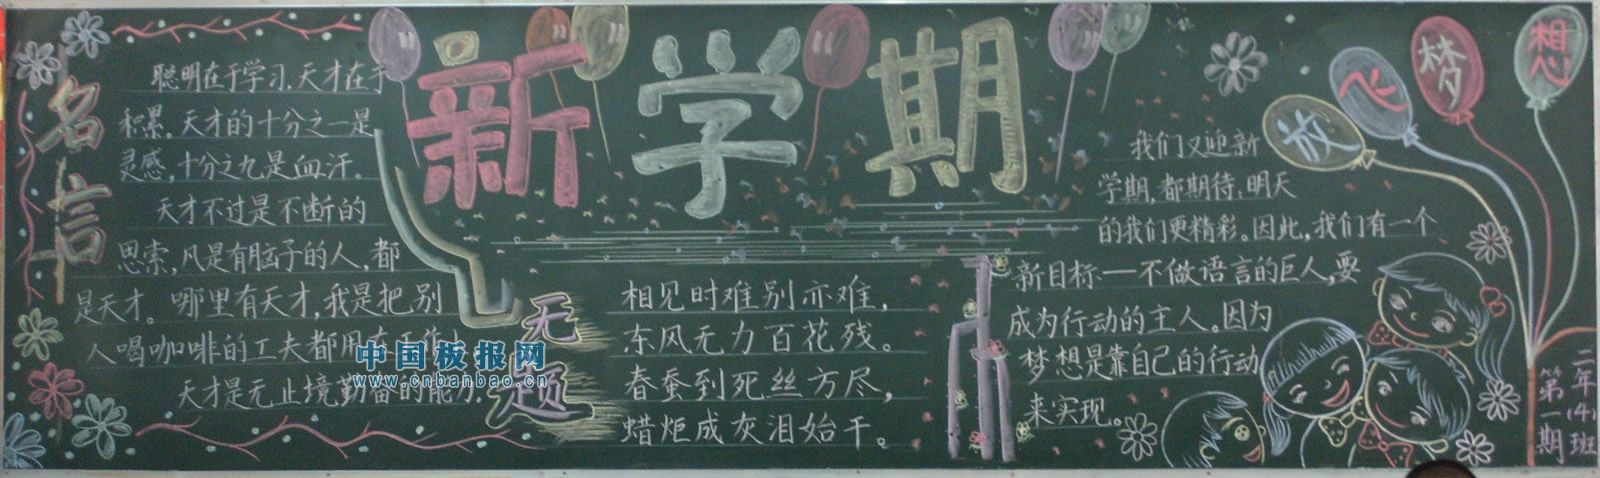 新学期
名言
聪明在于学习,天才在于
积累。天才的十分之一是
灵感,十分之九是血汗。
天才不过是不断的
思索,凡是有脑子的人,都
是天才。哪里有天才,我是把别
人喝咖啡的工夫都用在工作上
天才是无止境勤奋的能力.
中国板报网
www.cnbanbao.cn
无题
相见时难别亦难,
东风无力百花残。
春蚕到死丝方尽,
蜡炬成灰泪始干。
放飞梦想
我们又迎新
学期,都期待,明天
的我们更精彩。因此,我们有一个
新目标——不做语言的巨人,要
成为行动的主人。因为
梦想是靠自己的行动
来实现。
二年(4)班
第一期